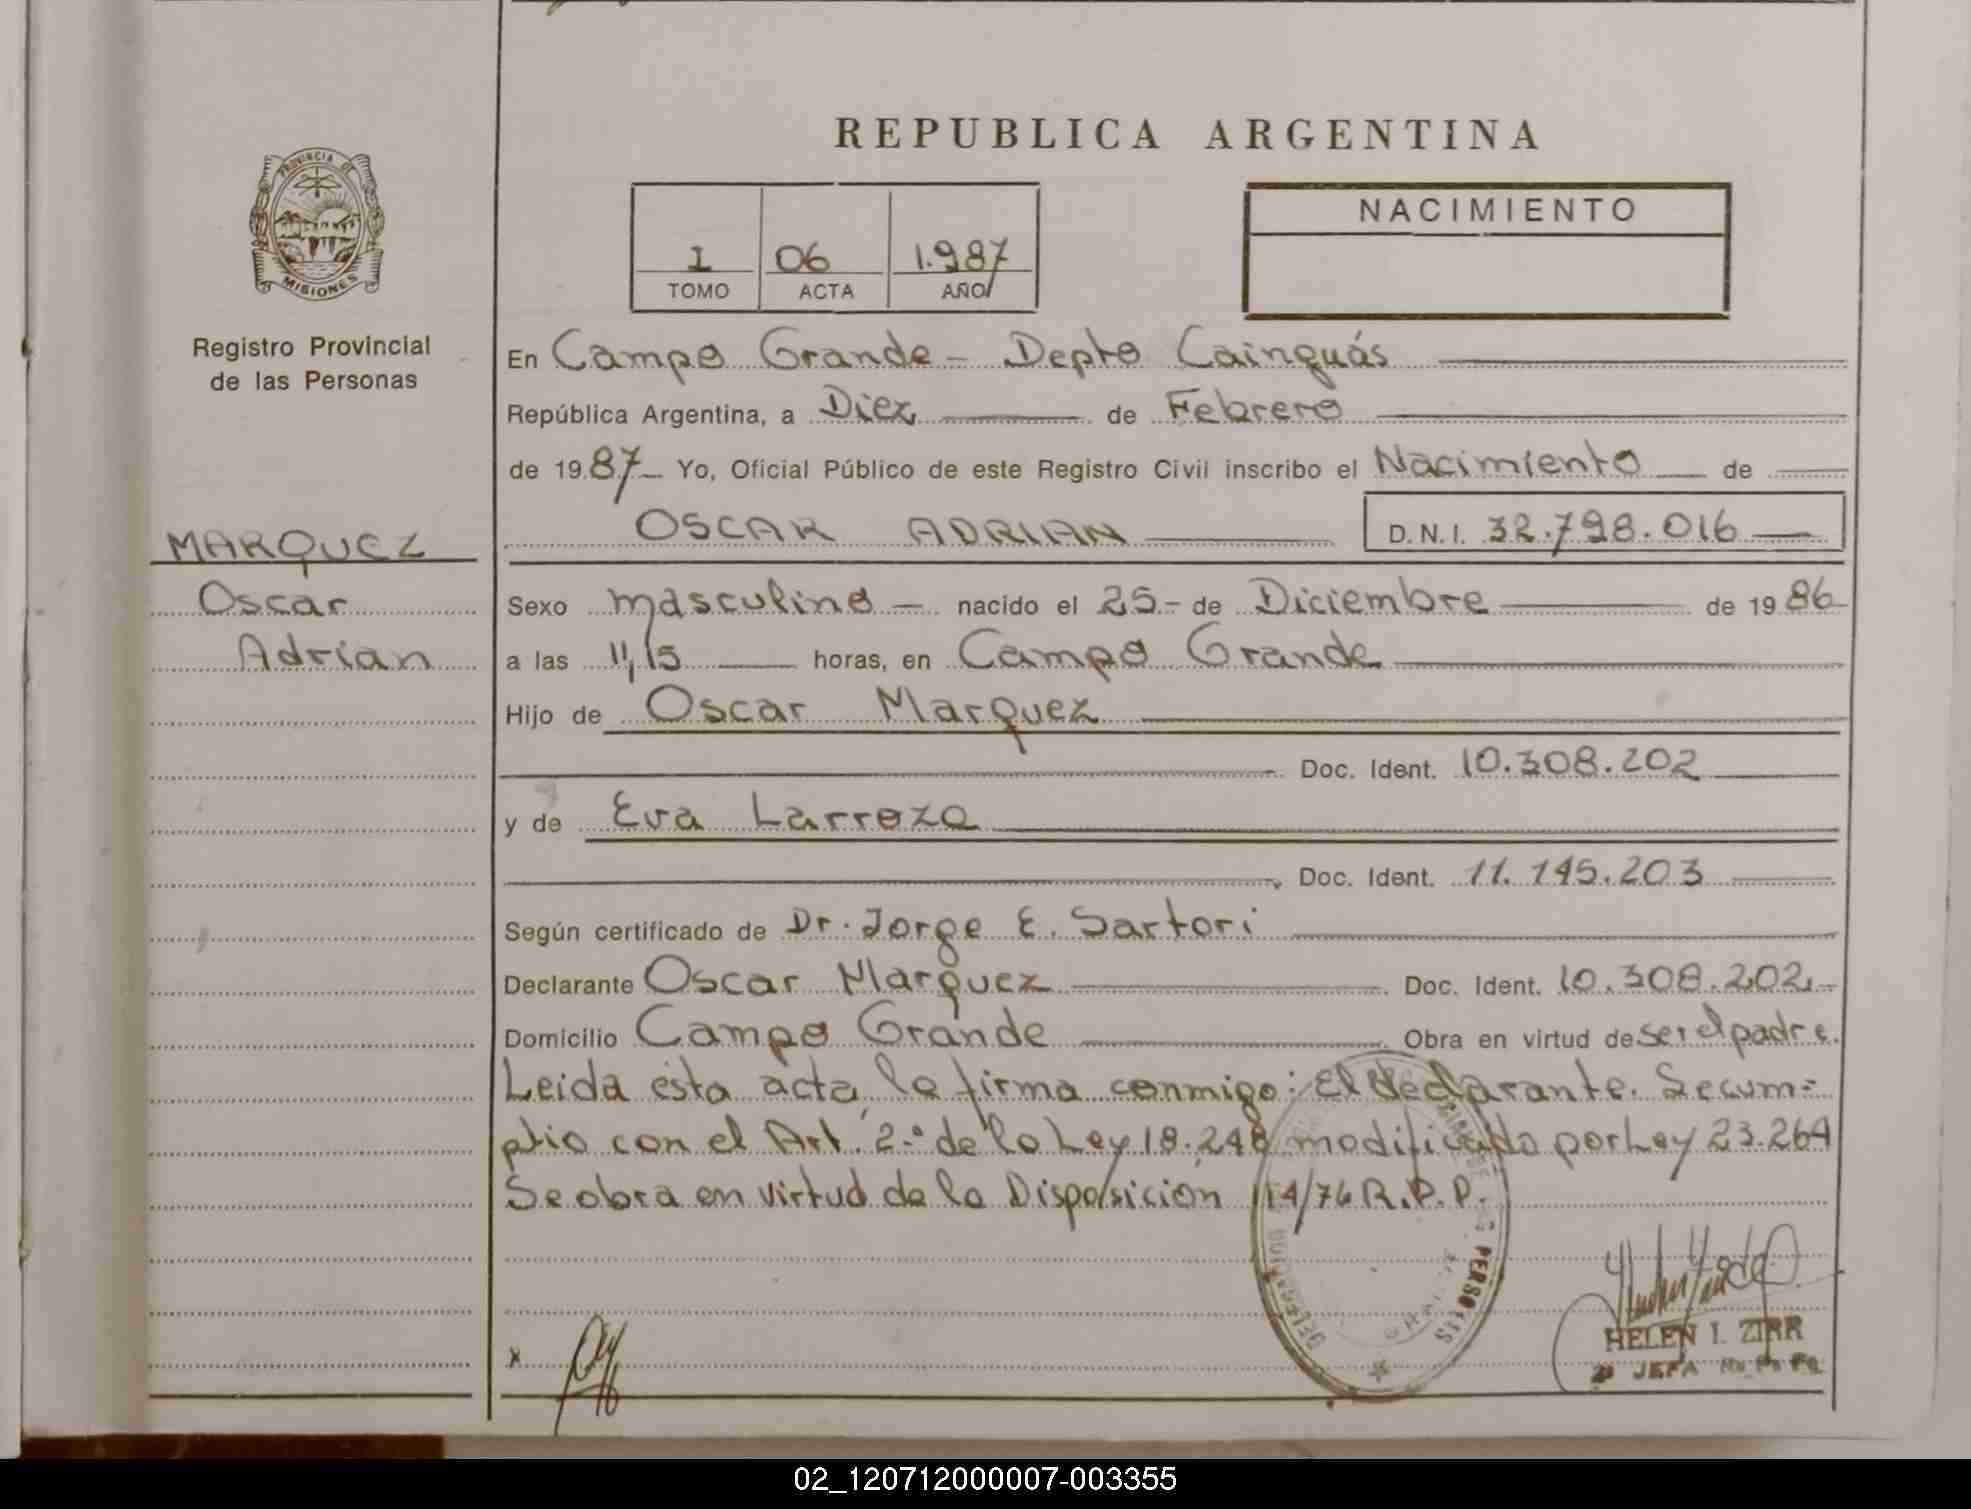 REPUBLICA ARGENTINA
PROVINCIA DE
MISIONES
Registro Provincial
de las Personas
1 06 1.987
TOMO ACTA AÑO
NACIMIENTO
MARQUEZ
Oscar
Adrian
En Campo Grande - Depto Cainguás
República Argentina, a Diez de Febrero
de 19 87 Yo, Oficial Público de este Registro Civil inscribo el Nacimiento de
OSCAR ADRIAN D.N.I. 32.798.016
Sexo masculino - nacido el 25 - de Diciembre de 19 86
a las 11,15 horas, en Campo Grande
Hijo de Oscar Marquez
Doc. Ident. 10.308.202
y de Eva Larroza
Doc. Ident. 11.145.203
Según certificado de Dr. Jorge E. Sartori
Declarante Oscar Marquez Doc. Ident. 10.308.202
Domicilio Campo Grande Obra en virtud de ser el padre.
Leida ésta acta, la firma conmigo: El declarante. Se cum=
plio con el Art. 2.º de la Ley 18.248 modificado por Ley 23.264
Se obra en virtud de la Disposición 114/76 R.P.P.
x
HELEN I. ZIRR
JEFA
02_120712000007-003355